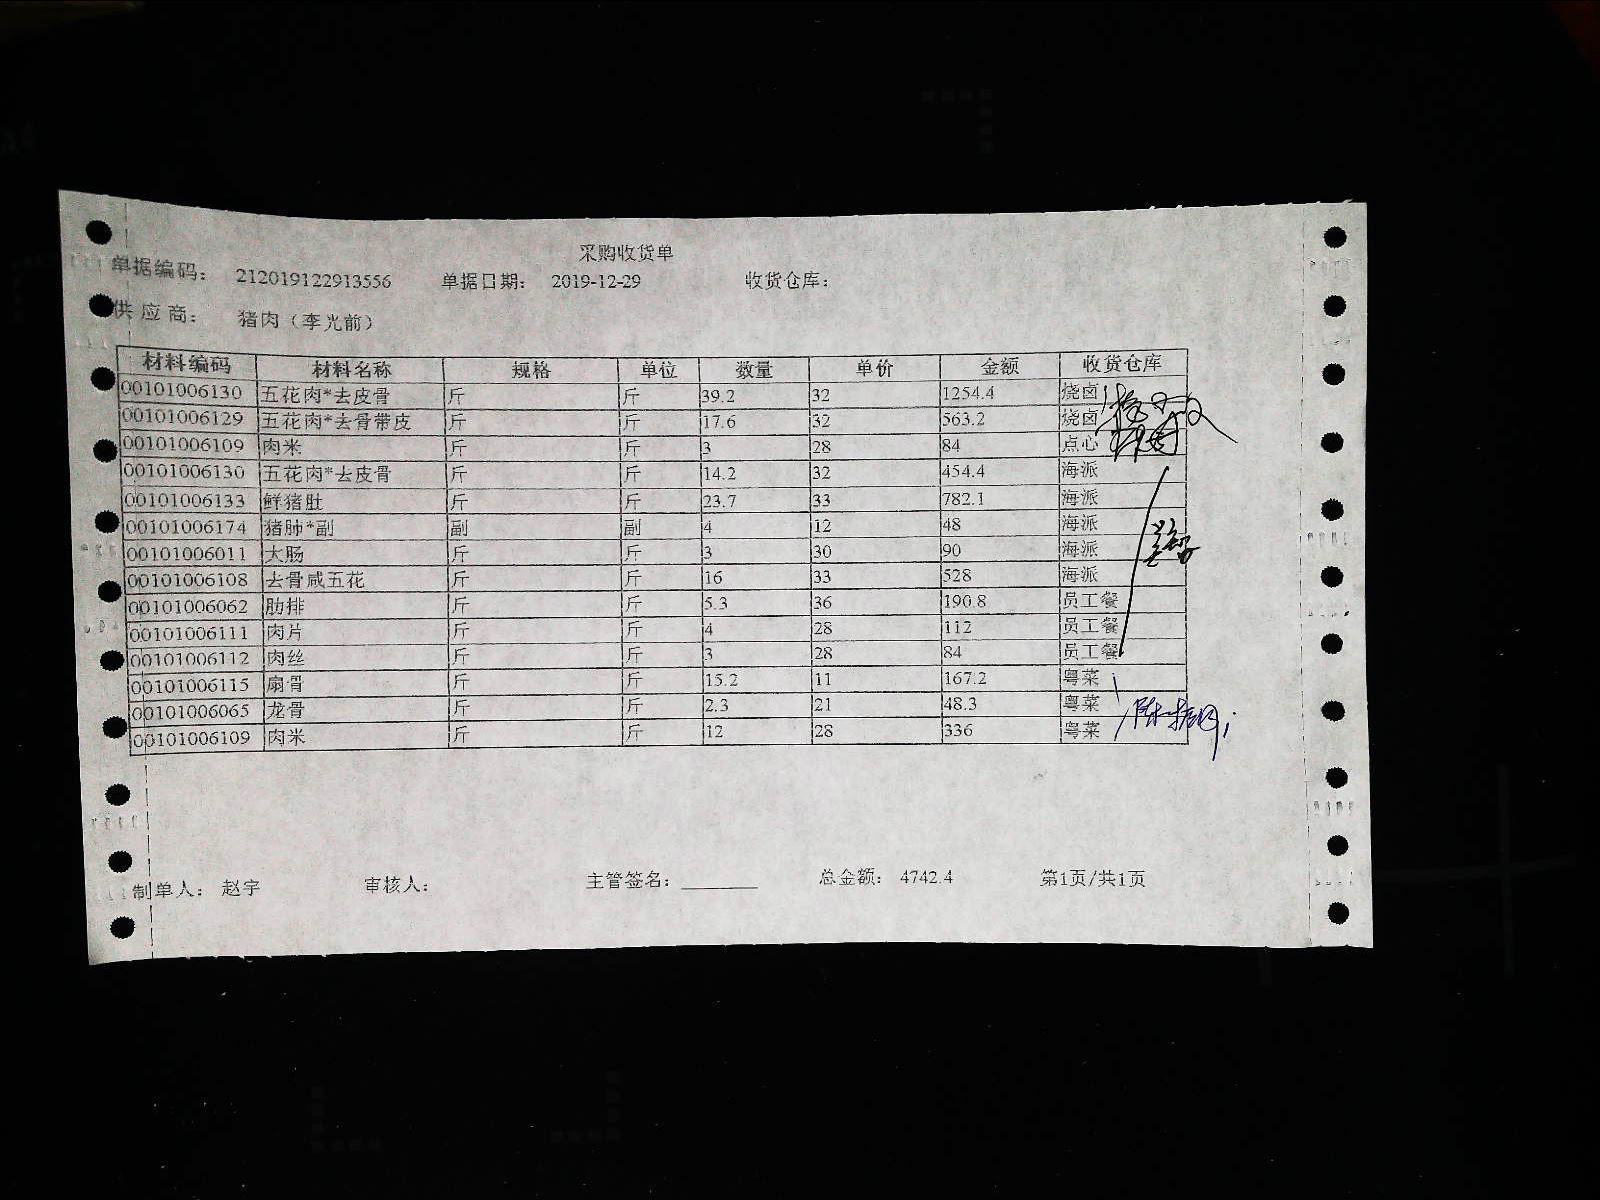 采购收货单
单据编码： 212019122913556 单据日期： 2019-12-29 收货仓库：
供应商： 猪肉（李光前）
材料编码 材料名称 规格 单位 数量 单价 金额 收货仓库
00101006130 五花肉*去皮骨 斤 斤 39.2 32 1254.4 烧卤
00101006129 五花肉*去骨带皮 斤 斤 17.6 32 563.2 烧卤
00101006109 肉米 斤 斤 3 28 84 点心
00101006130 五花肉*去皮骨 斤 斤 14.2 32 454.4 海派
00101006133 鲜猪肚 斤 斤 23.7 33 782.1 海派
00101006174 猪肺*副 副 副 4 12 48 海派
00101006011 大肠 斤 斤 3 30 90 海派
00101006108 去骨咸五花 斤 斤 16 33 528 海派
00101006062 肋排 斤 斤 5.3 36 190.8 员工餐
00101006111 肉片 斤 斤 4 28 112 员工餐
00101006112 肉丝 斤 斤 3 28 84 员工餐
00101006115 扇骨 斤 斤 15.2 11 167.2 粤菜
00101006065 龙骨 斤 斤 2.3 21 48.3 粤菜
00101006109 肉米 斤 斤 12 28 336 粤菜
制单人： 赵宇 审核人： 主管签名： 总金额： 4742.4 第1页/共1页